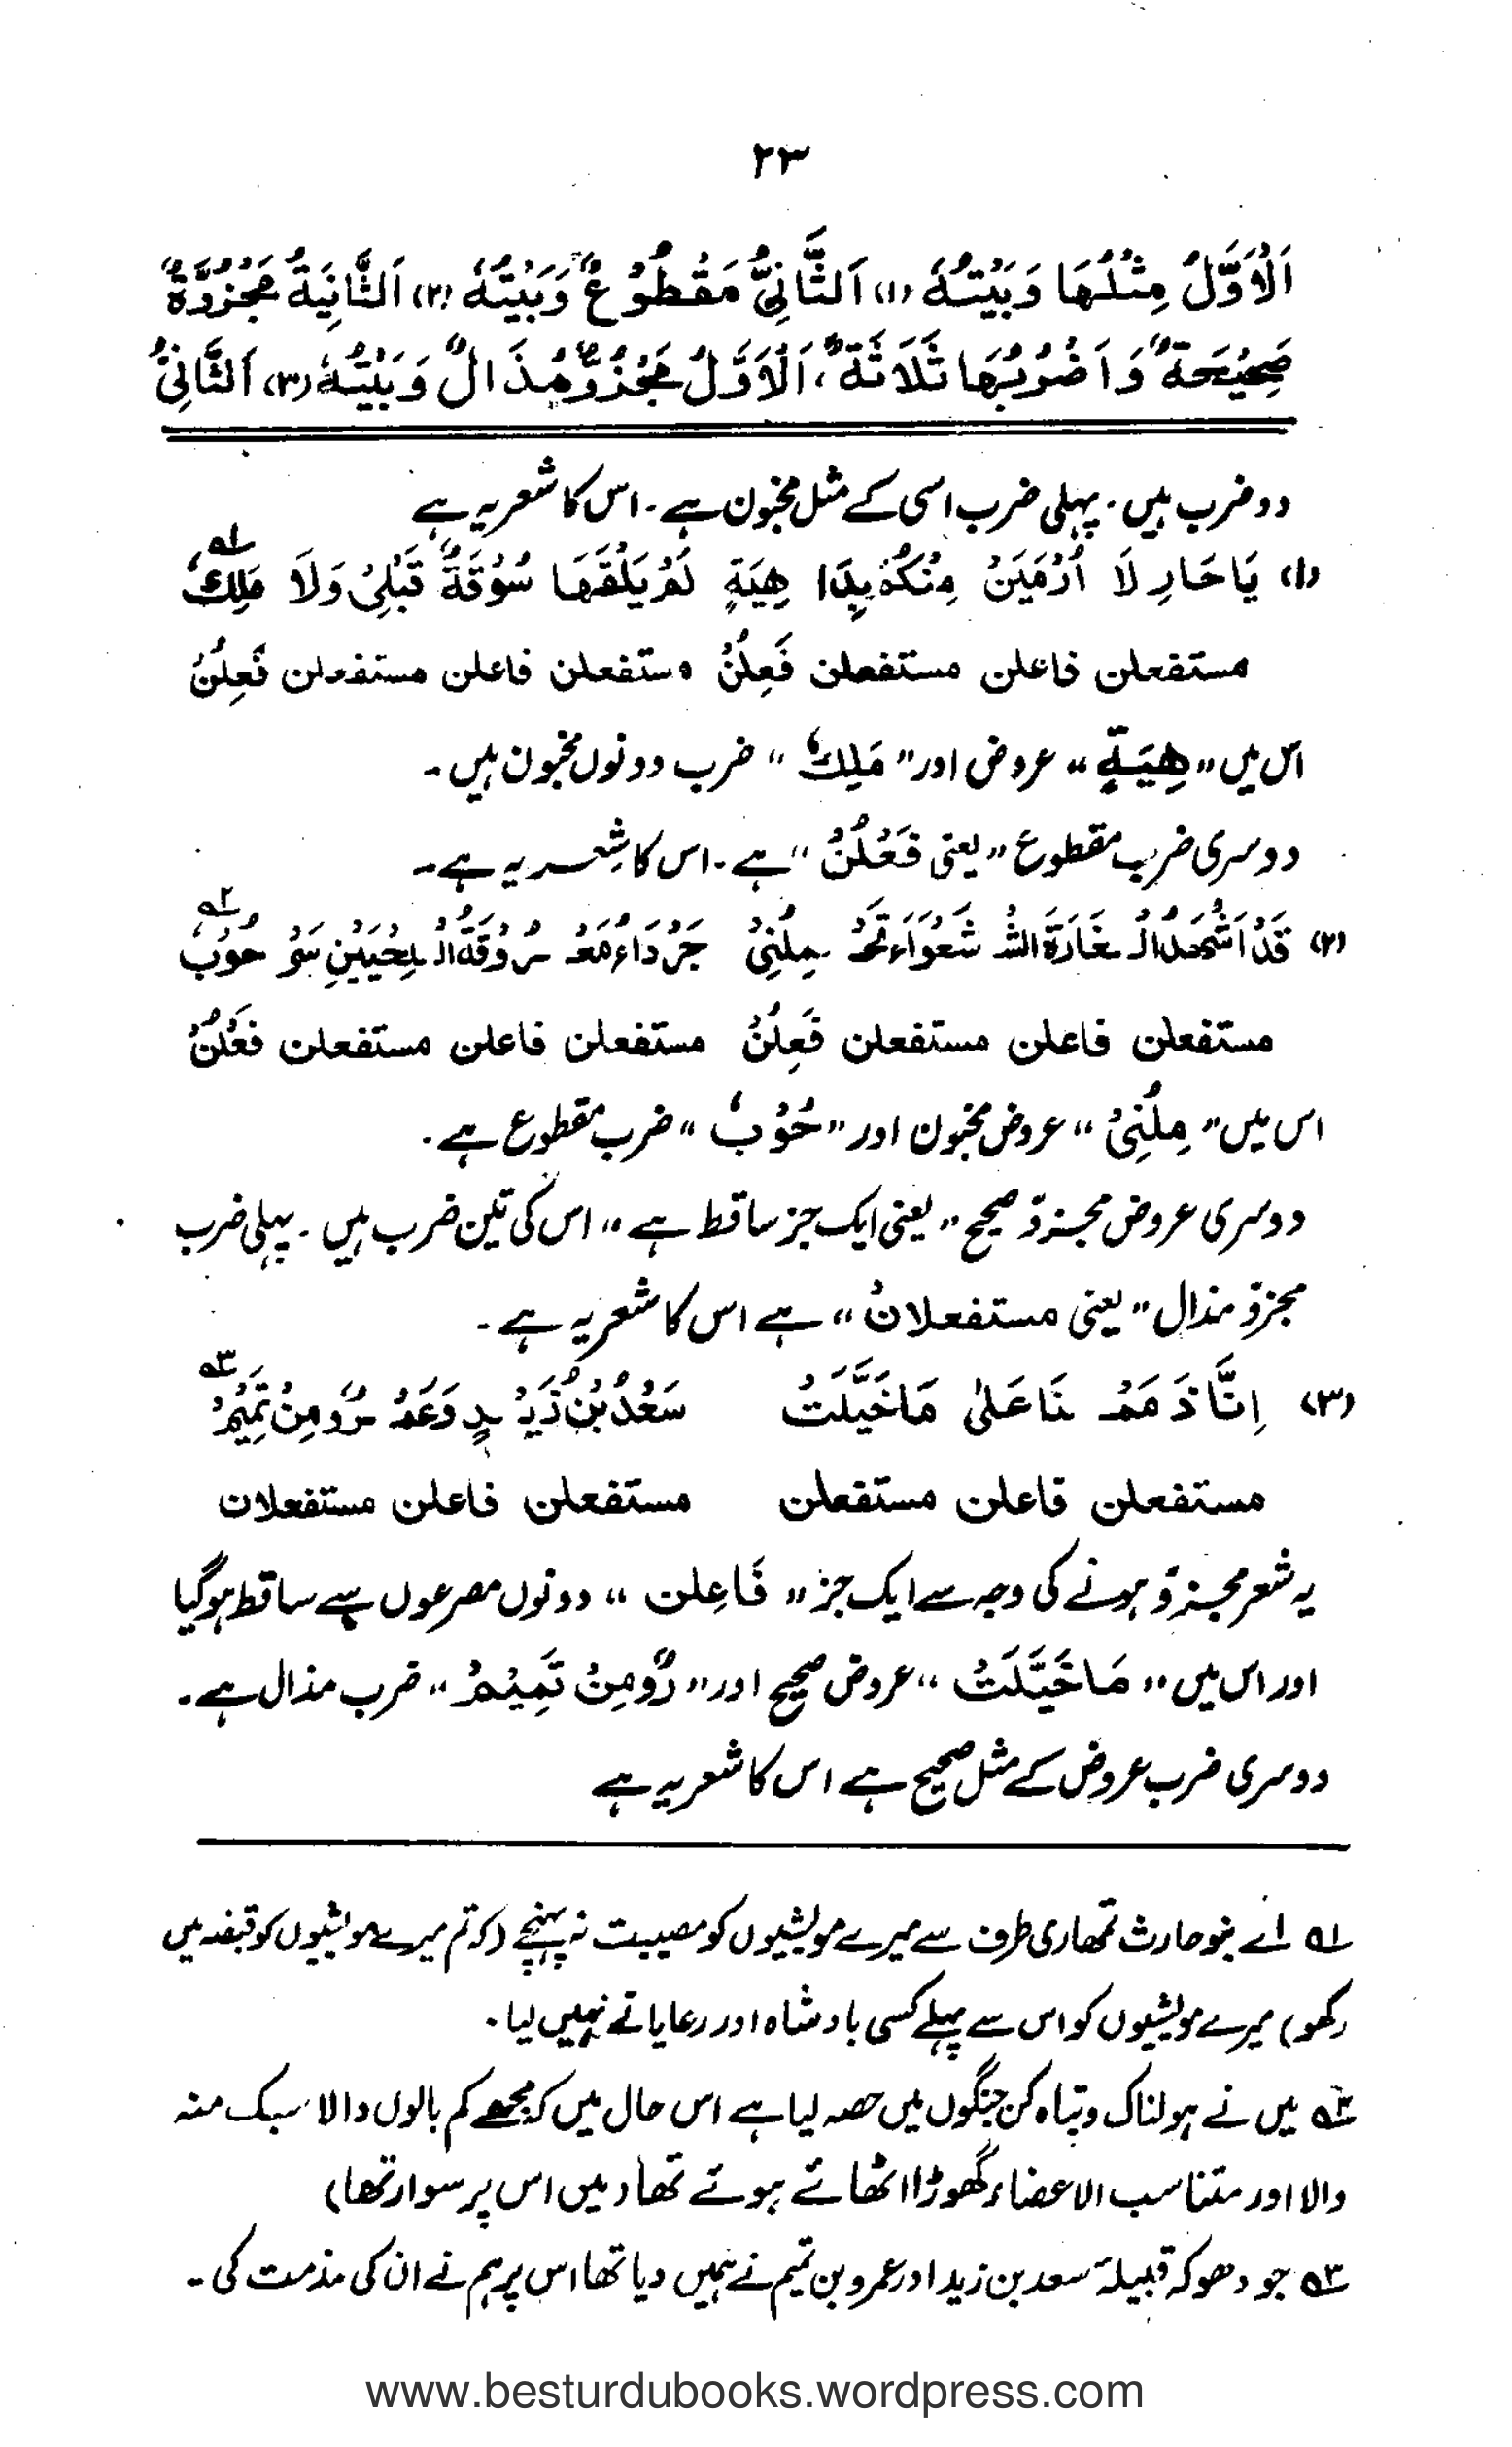 ۲۳
اَلْاَوَّلُ مِثْلُهَا وَبَيْتُهٗ (۱) اَلثَّانِيُّ مَقْطُوْعٌ وَبَيْتُهٗ (۲) اَلثَّانِيَةُ مَجْزُوَّةٌ
صَحِيْحَةٌ وَاَضْرُبُهَا ثَلَاثَةٌ، اَلْاَوَّلُ مَجْزُوٌّ مُذَالٌ وَبَيْتُهٗ (۳) اَلثَّانِیْ
دو ضرب ہیں۔ پہلی ضرب اسی کے مثل مخبون ہے۔ اس کا شعر یہ ہے
(۱) يَا حَارِ لَا اُرْمَيَنْ مِنْكُمْ بِدَا هِيَةٍ لَمْ يَلْقَهَا سُوْقَةٌ قَبْلِیْ وَلَا مَلِكٗ ۱؎
مستفعلن فاعلن مستفعلن فَعِلُنْ مستفعلن فاعلن مستفعلن فَعِلُنْ
اس میں ”هِيَةٍ“ عروض اور ”مَلِكٗ“ ضرب دونوں مخبون ہیں۔
دوسری ضرب مقطوع ”یعنی فَعْلُنْ“ ہے۔ اس کا شعر یہ ہے۔
(۲) قَدْ اَشْهَدُ الْ غَارَةَ الشْ شَعْوَاءَ تَحْ مِلُنِیْ جَرْدَاءُ مَعْ رُوْقَةُ الْ لِحْيَيْنِ سُرْ حُوْبٗ ۲؎
مستفعلن فاعلن مستفعلن فَعِلُنْ مستفعلن فاعلن مستفعلن فَعْلُنْ
اس میں ”مِلُنِیْ“ عروض مخبون اور ”حُوْبٗ“ ضرب مقطوع ہے۔
دوسری عروض مجزوّ صحیح ”یعنی ایک جز ساقط ہے“ اس کی تین ضرب ہیں۔ پہلی ضرب
مجزوّ مذال ”یعنی مستفعلانْ“ ہے اس کا شعر یہ ہے۔
(۳) اِنَّا ذَمَمْ نَا عَلٰی مَا خَيَّلَتْ سَعْدُ بْنُ زَيْ دٍ وَعَمْ رٌو مِنْ تَمِيْمْ ۳؎
مستفعلن فاعلن مستفعلن مستفعلن فاعلن مستفعلان
یہ شعر مجزوّ ہونے کی وجہ سے ایک جز ”فَاعِلن“ دونوں مصرعوں سے ساقط ہوگیا
اور اس میں ”مَا خَيَّلَتْ“ عروض صحیح اور ”رٌو مِنْ تَمِيْمْ“ ضرب مذال ہے۔
دوسری ضرب عروض کے مثل صحیح ہے اس کا شعر یہ ہے
۱؎ اے بنو حارث تمھاری طرف سے میرے مویشیوں کو مصیبت نہ پہنچے (کہ تم میرے مویشیوں کو قبضہ میں
رکھو) میرے مویشیوں کو اس سے پہلے کسی بادشاہ اور رعایا نے نہیں لیا۔
۲؎ میں نے ہولناک و تباہ کن جنگوں میں حصہ لیا ہے اس حال میں کہ مجھے کم بالوں والا سبک منہ
والا اور متناسب الاعضاء گھوڑا اٹھائے ہوئے تھا (میں اس پر سوار تھا)
۳؎ جو دھوکہ قبیلۂ سعد بن زید اور عمرو بن تمیم نے ہمیں دیا تھا اس پر ہم نے ان کی مذمت کی۔
www.besturdubooks.wordpress.com